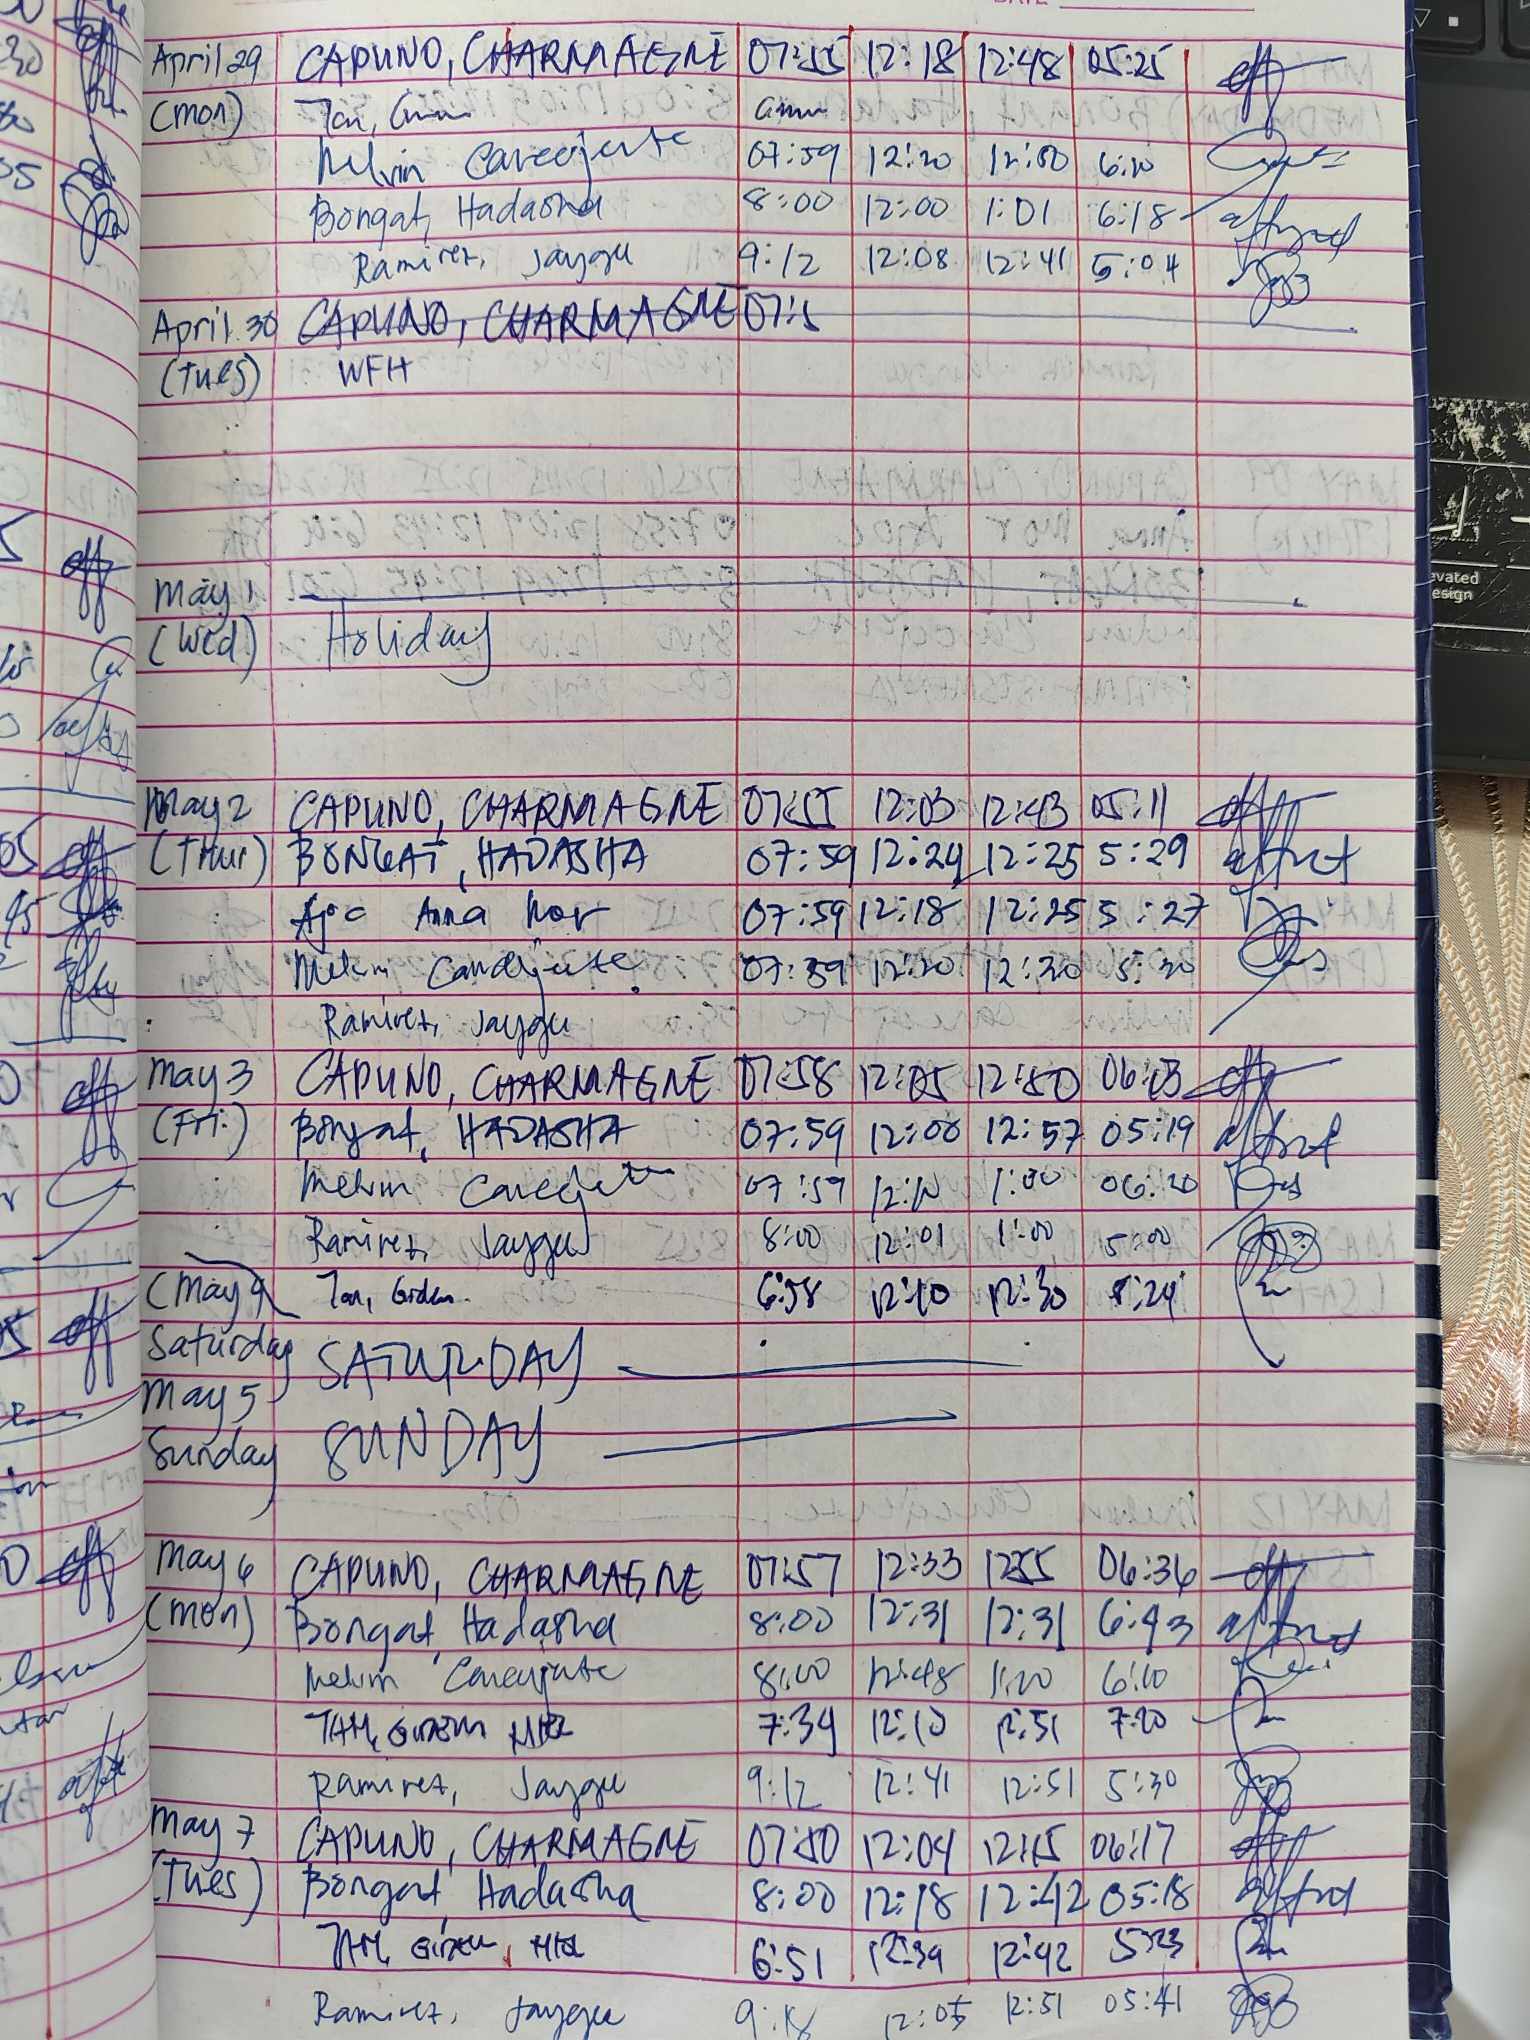 April 29 CAPUNO, CHARMAGNE 07:55 12:18 12:48 05:25
(mon) Tan,
Melvin 07:59 12:20 12:50 6:10
Bongat, Hadasha 8:00 12:00 1:01 6:18
Ramirez, Jaygu 9:12 12:08 12:41 5:04
April 30 CAPUNO, CHARMAGNE 07:5
(Tues) WFH
May 1
(Wed) Holiday
May 2 CAPUNO, CHARMAGNE 07:55 12:03 12:43 05:11
(Thur) BONGAT, HADASHA 07:59 12:24 12:25 5:29
Ajoc Anna Mor 07:59 12:18 12:25 5:27
Melvin 07:59 12:20 12:30 5:30
Ramirez, Jaygu
May 3 CAPUNO, CHARMAGNE 07:58 12:05 12:50 06:03
(Fri.) Bongat, HADASHA 07:59 12:00 12:57 05:19
Melvin 07:59 12:10 1:00 06:20
Ramirez, Jaygu 8:00 12:01 1:00 5:00
(May 4 Tan, 6:58 12:10 12:30 8:24
Saturday SATURDAY
May 5
Sunday SUNDAY
May 6 CAPUNO, CHARMAGNE 07:57 12:33 12:55 06:36
(mon) Bongat, Hadasha 8:00 12:31 12:31 6:43
Melvin 8:00 12:48 1:20 6:10
TAN, 7:34 12:10 12:51 7:20
Ramirez, Jaygu 9:12 12:41 12:51 5:30
May 7 CAPUNO, CHARMAGNE 07:50 12:04 12:15 06:17
(Tues) Bongat, Hadasha 8:00 12:18 12:42 05:18
TAN, 6:51 12:39 12:42 5:23
Ramirez, Jaygu 9:18 12:05 12:51 05:41